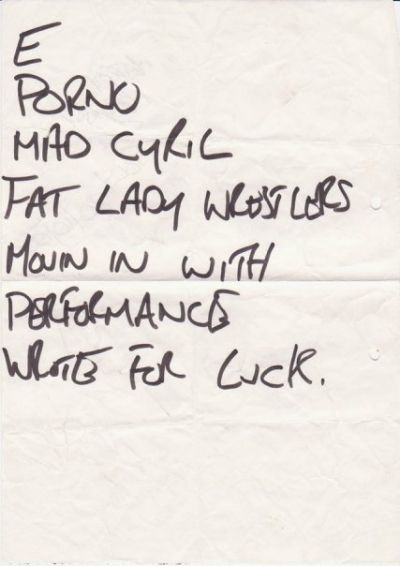 E
PORNO
MAD CYRIL
FAT LADY WRESTLERS
MOVIN IN WITH
PERFORMANCE
WROTE FOR LUCK.